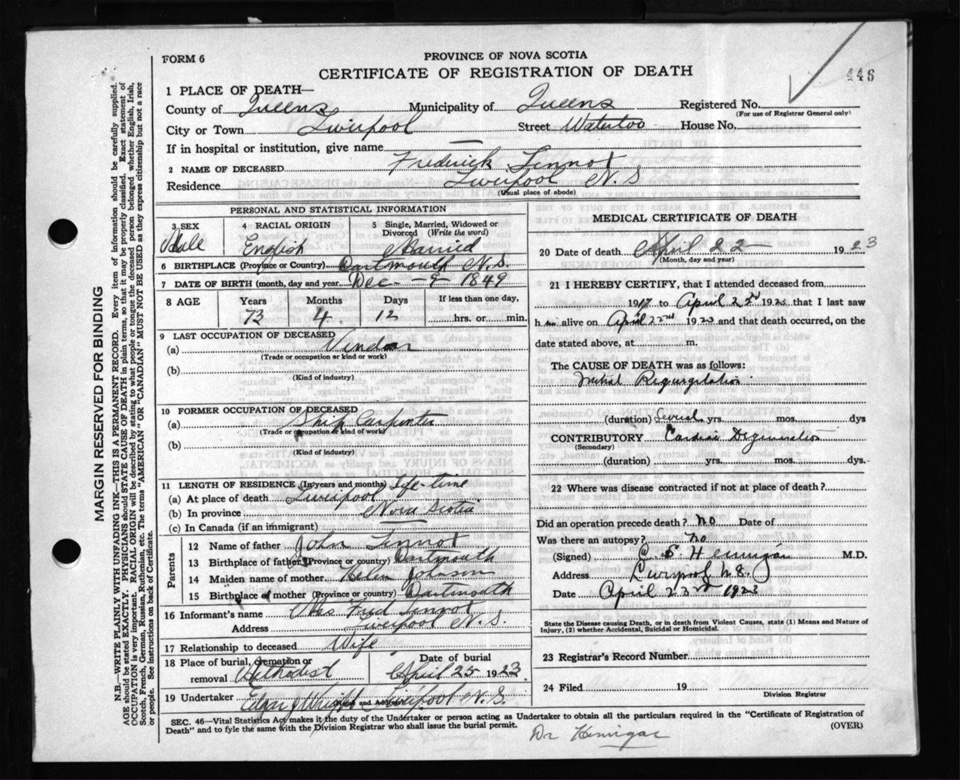 FORM 6
PROVINCE OF NOVA SCOTIA
CERTIFICATE OF REGISTRATION OF DEATH
446
1 PLACE OF DEATH—
County of Queens Municipality of Queens Registered No.
(For use of Registrar General only)
City or Town Liverpool Street Waterloo House No.
If in hospital or institution, give name —
2 NAME OF DECEASED Frederick Tennot
Residence Liverpool N.S
(Usual place of abode)
PERSONAL AND STATISTICAL INFORMATION
3 SEX 4 RACIAL ORIGIN 5 Single, Married, Widowed or Divorced (Write the word)
Male English Married
6 BIRTHPLACE (Province or Country) Dartmouth N.S.
7 DATE OF BIRTH (month, day and year) Dec - 9 1849
8 AGE Years Months Days If less than one day,
73 4 12 hrs. or min.
9 LAST OCCUPATION OF DECEASED
(a) Vendor
(Trade or occupation or kind or work)
(b)
(Kind of industry)
10 FORMER OCCUPATION OF DECEASED
(a) Ship Carpenter
(Trade or occupation or kind of work)
(b)
(Kind of industry)
11 LENGTH OF RESIDENCE (In years and months) Life-time
(a) At place of death Liverpool
(b) In province Nova Scotia
(c) In Canada (if an immigrant) —
Parents
12 Name of father John Tennot
13 Birthplace of father (Province or country) Dartmouth
14 Maiden name of mother Helen Johnson
15 Birthplace of mother (Province or country) Dartmouth
16 Informant's name Mrs Fred Tennot
Address Liverpool N.S.
17 Relationship to deceased Wife
18 Place of burial, cremation or removal Methodist Date of burial April 25 1923
19 Undertaker Edgar J Wright Liverpool N.S.
MEDICAL CERTIFICATE OF DEATH
20 Date of death April 22 — 1923
(Month, day and year)
21 I HEREBY CERTIFY, that I attended deceased from
1917 to April 22nd 1923 that I last saw
h im alive on April 22nd 1923 and that death occurred, on
date stated above, at m.
The CAUSE OF DEATH was as follows:
Mitral Regurgitation
(duration) Several yrs. mos. dys
CONTRIBUTORY Cardiac Degeneration
(Secondary)
(duration) yrs. mos. dys.
22 Where was disease contracted if not at place of death?
Did an operation precede death? No Date of
Was there an autopsy? No
(Signed) Hennigar M.D.
Address Liverpool N.S.
Date April 23rd 1923
State the Disease causing Death, or in death from Violent Causes, state (1) Means and Nature of Injury, (2) whether Accidental, Suicidal or Homicidal.
23 Registrar's Record Number
24 Filed 19
Division Registrar
SEC. 46—Vital Statistics Act makes it the duty of the Undertaker or person acting as Undertaker to obtain all the particulars required in the "Certificate of Registration of
Death" and to fyle the same with the Division Registrar who shall issue the burial permit. (OVER)
Dr Hennigar
MARGIN RESERVED FOR BINDING
N.B.—WRITE PLAINLY WITH UNFADING INK—THIS IS A PERMANENT RECORD. Every item of information should be carefully supplied.
AGE should be stated EXACTLY. PHYSICIANS should STATE CAUSE OF DEATH in plain terms, so that it may be properly classified. Exact statement of
OCCUPATION is very important. RACIAL ORIGIN will be described by stating to what people or tongue the deceased person belonged whether English, Irish,
Scotch, French, German, Russian, Rumenian, etc. The terms "AMERICAN" OR "CANADIAN" MUST NOT BE USED as they express citizenship but not a race
or people. See instructions on back of Certificate.